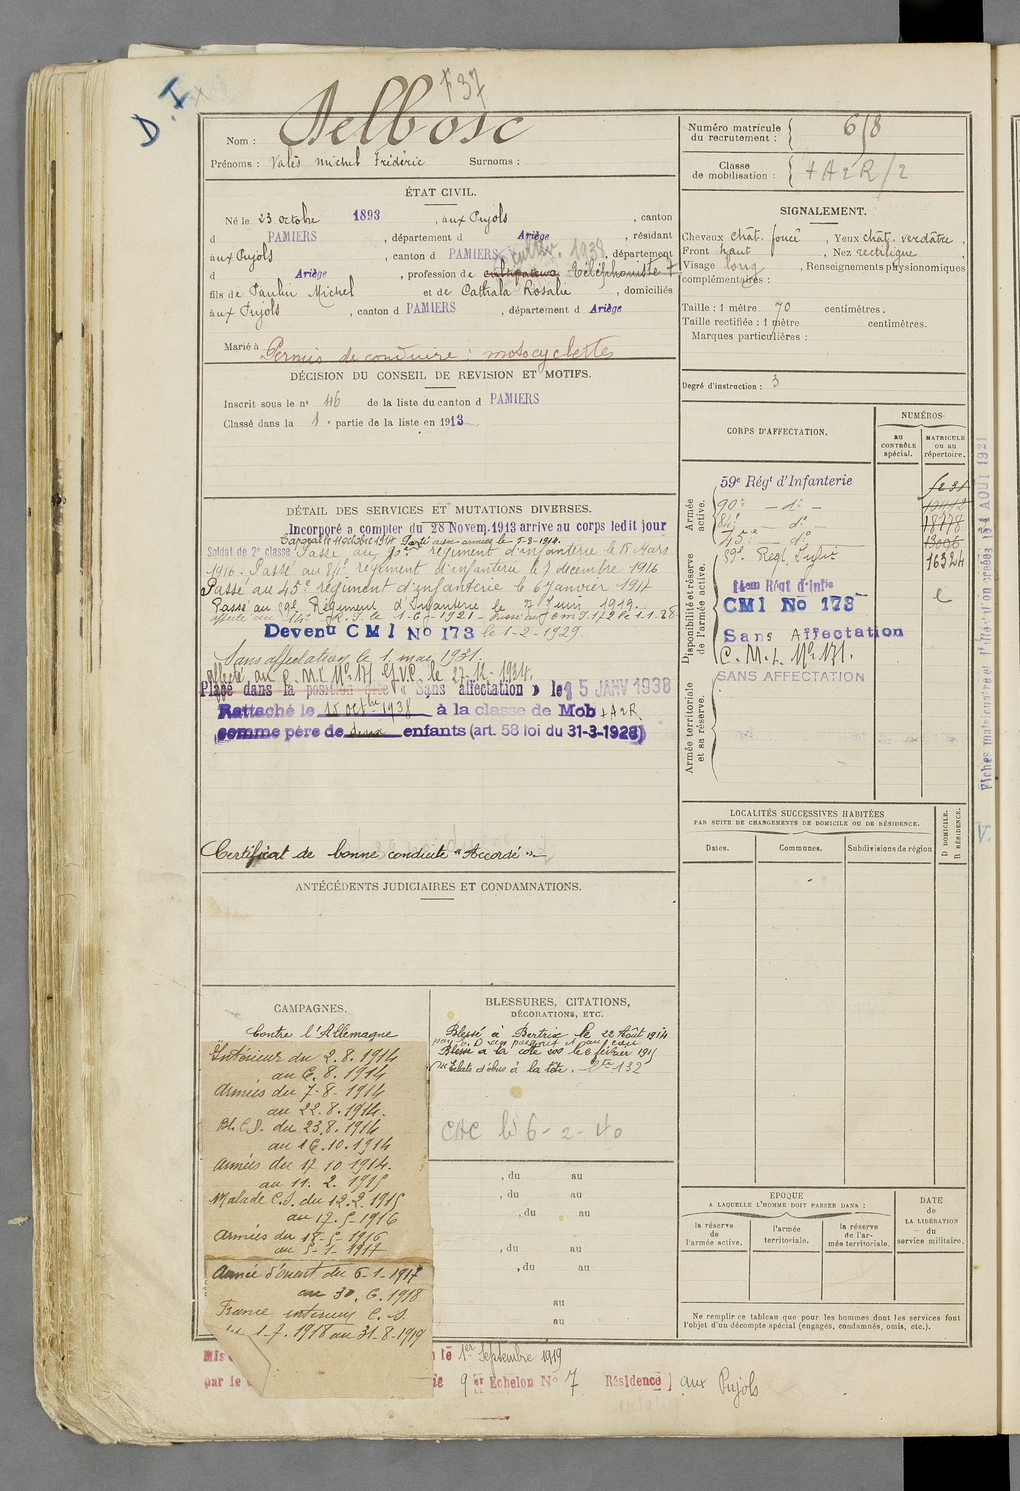 D. I
F37
Nom : Delbosc
Prénoms : Valès Michel Frédéric Surnoms :
Numéro matricule du recrutement : 658
Classe de mobilisation : + A 2 R/2
ÉTAT CIVIL.
Né le 23 octobre 1893, aux Pujols, canton
d PAMIERS, département d Ariège, résidant
aux Pujols, canton d PAMIERS, département
cultiv. 1938
d Ariège, profession de cultivateur téléphoniste 7
fils de Paulin Michel et de Cathala Rosalie, domiciliés
aux Pujols, canton d PAMIERS, département d Ariège
Marié à
Permis de conduire : motocyclettes
DÉCISION DU CONSEIL DE REVISION ET MOTIFS.
Inscrit sous le n° 46 de la liste du canton d PAMIERS
Classé dans la 1e partie de la liste en 1913
SIGNALEMENT.
Cheveux chât. foncé, Yeux chât. verdâtre,
Front haut, Nez rectiligne,
Visage long, Renseignements physionomiques
complémentaires :
Taille : 1 mètre 70 centimètres.
Taille rectifiée : 1 mètre centimètres.
Marques particulières :
Degré d'instruction : 3
DÉTAIL DES SERVICES ET MUTATIONS DIVERSES.
Incorporé a compter du 28 Novem. 1913 arrive au corps ledit jour
Caporal le 11 octobre 1914 Parti aux armées le 7-8-1914.
Soldat de 2e classe Passé au 90e régiment d'infanterie le 18 Mars
1916. Passé au 84e régiment d'infanterie le 1 décembre 1916
Passé au 45e régiment d'infanterie le 6 Janvier 1917
Passé au 59e Régiment d'Infanterie le 7 Juin 1919.
affecté au 14e R.I. le 1-6-1921 -
Devenu C M I No 173 le 1-2-1929
Sans affectation le 1 mai 1931.
Affecté au C.M.I. No 171 G.V.C. le 27-11-1934.
Placé dans la position dite « Sans affectation » le 15 JANV 1938
Rattaché le 15 octbre 1938 à la classe de Mob + A 2 R
comme père de deux enfants (art. 58 loi du 31-3-1928)
Certificat de bonne conduite « Accordé »
ANTÉCÉDENTS JUDICIAIRES ET CONDAMNATIONS.
CORPS D'AFFECTATION.
NUMÉROS
au CONTRÔLE spécial.
MATRICULE ou au répertoire.
Armée active.
59e Régt d'Infanterie
90e — do —
84e — do
45e — do
59e Regt Infie
18778
16324
Disponibilité et réserve de l'armée active.
14em Régt d'Infie
CMI No 173
Sans Affectation
C. M. I. No 171.
SANS AFFECTATION
Armée territoriale et sa réserve.
LOCALITÉS SUCCESSIVES HABITÉES
PAR SUITE DE CHANGEMENTS DE DOMICILE OU DE RÉSIDENCE.
Dates.
Communes.
Subdivisions de région
D DOMICILE.
R RÉSIDENCE.
CAMPAGNES.
Contre l'Allemagne
Intérieur du 2.8.1914
au 6.8.1914
Armées du 7-8-1914
au 22.8.1914.
Bl. C.I. du 23.8.1914
au 16.10.1914
Armées du 17 10 1914.
au 11.2.1915
Malade C.I. du 12.2.1915
au 17-5-1916
Armées du 18-5-1916
au 5-1-1917
Armée d'orient du 6-1-1917
au 30.6.1918
France intérieur C.S.
du 1-7.1918 au 31-8-1919
BLESSURES, CITATIONS,
DÉCORATIONS, ETC.
Blessé à Bertrix le 22 Août 1914
Blessé à la côte 200 le 6 février 1915
Eclats d'obus à la tête.
CAC le 6-2-40
, du au
, du au
, du au
, du au
, du au
au
au
EPOQUE
A LAQUELLE L'HOMME DOIT PASSER DANS :
la réserve de l'armée active.
l'armée territoriale.
la réserve de l'armée territoriale.
DATE de LA LIBÉRATION du service militaire.
Ne remplir ce tableau que pour les hommes dont les services font
l'objet d'un décompte spécial (engagés, condamnés, omis, etc.).
Mis
le 1er Septembre 1919
par le
9 er Echelon No 7 Résidence ) aux Pujols